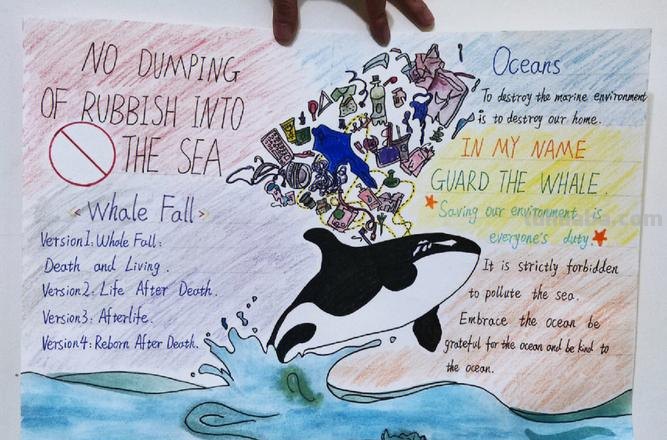 NO DUMPING
OF RUBBISH INTO
THE SEA
<Whale Fall>
Version1: Whole Fall:
Death and Living.
Version2: Life After Death.
Version3: Afterlife.
Version4: Reborn After Death.
Oceans
To destroy the marine environment
is to destroy our home.
IN MY NAME
GUARD THE WHALE.
Saving our environment is
everyone's duty
It is strictly forbidden
to pollute the sea.
Embrace the ocean be
grateful for the ocean and be kind to
the ocean.